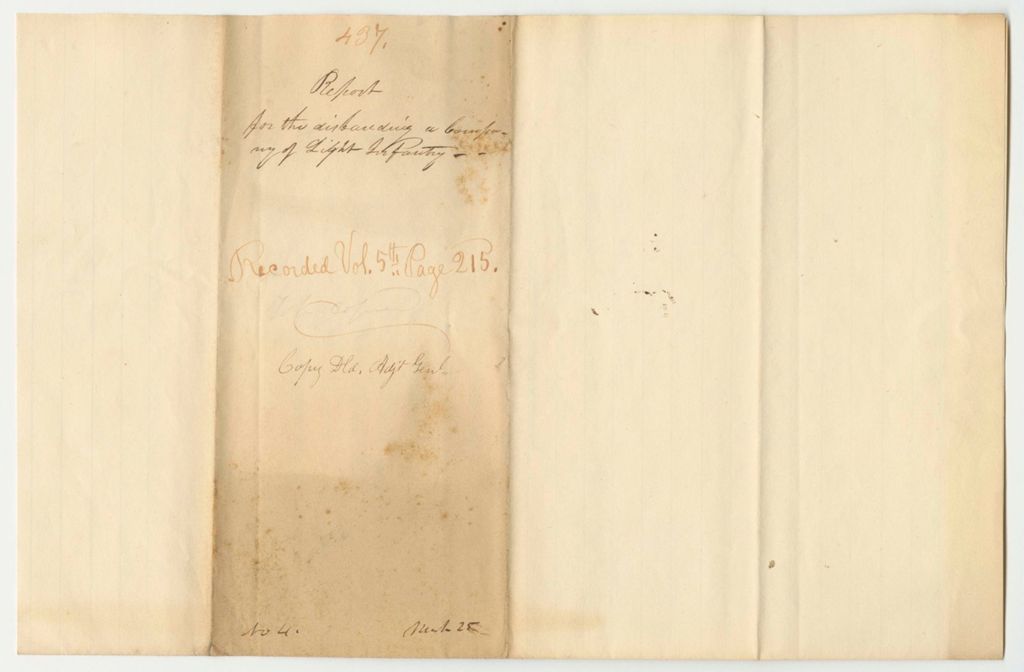 437.
Report
for the disbanding a Compa-
ny of Light Infantry - -
Recorded Vol. 5th Page 215.
Copy Dld. Adjt Genl.
No 4.
25